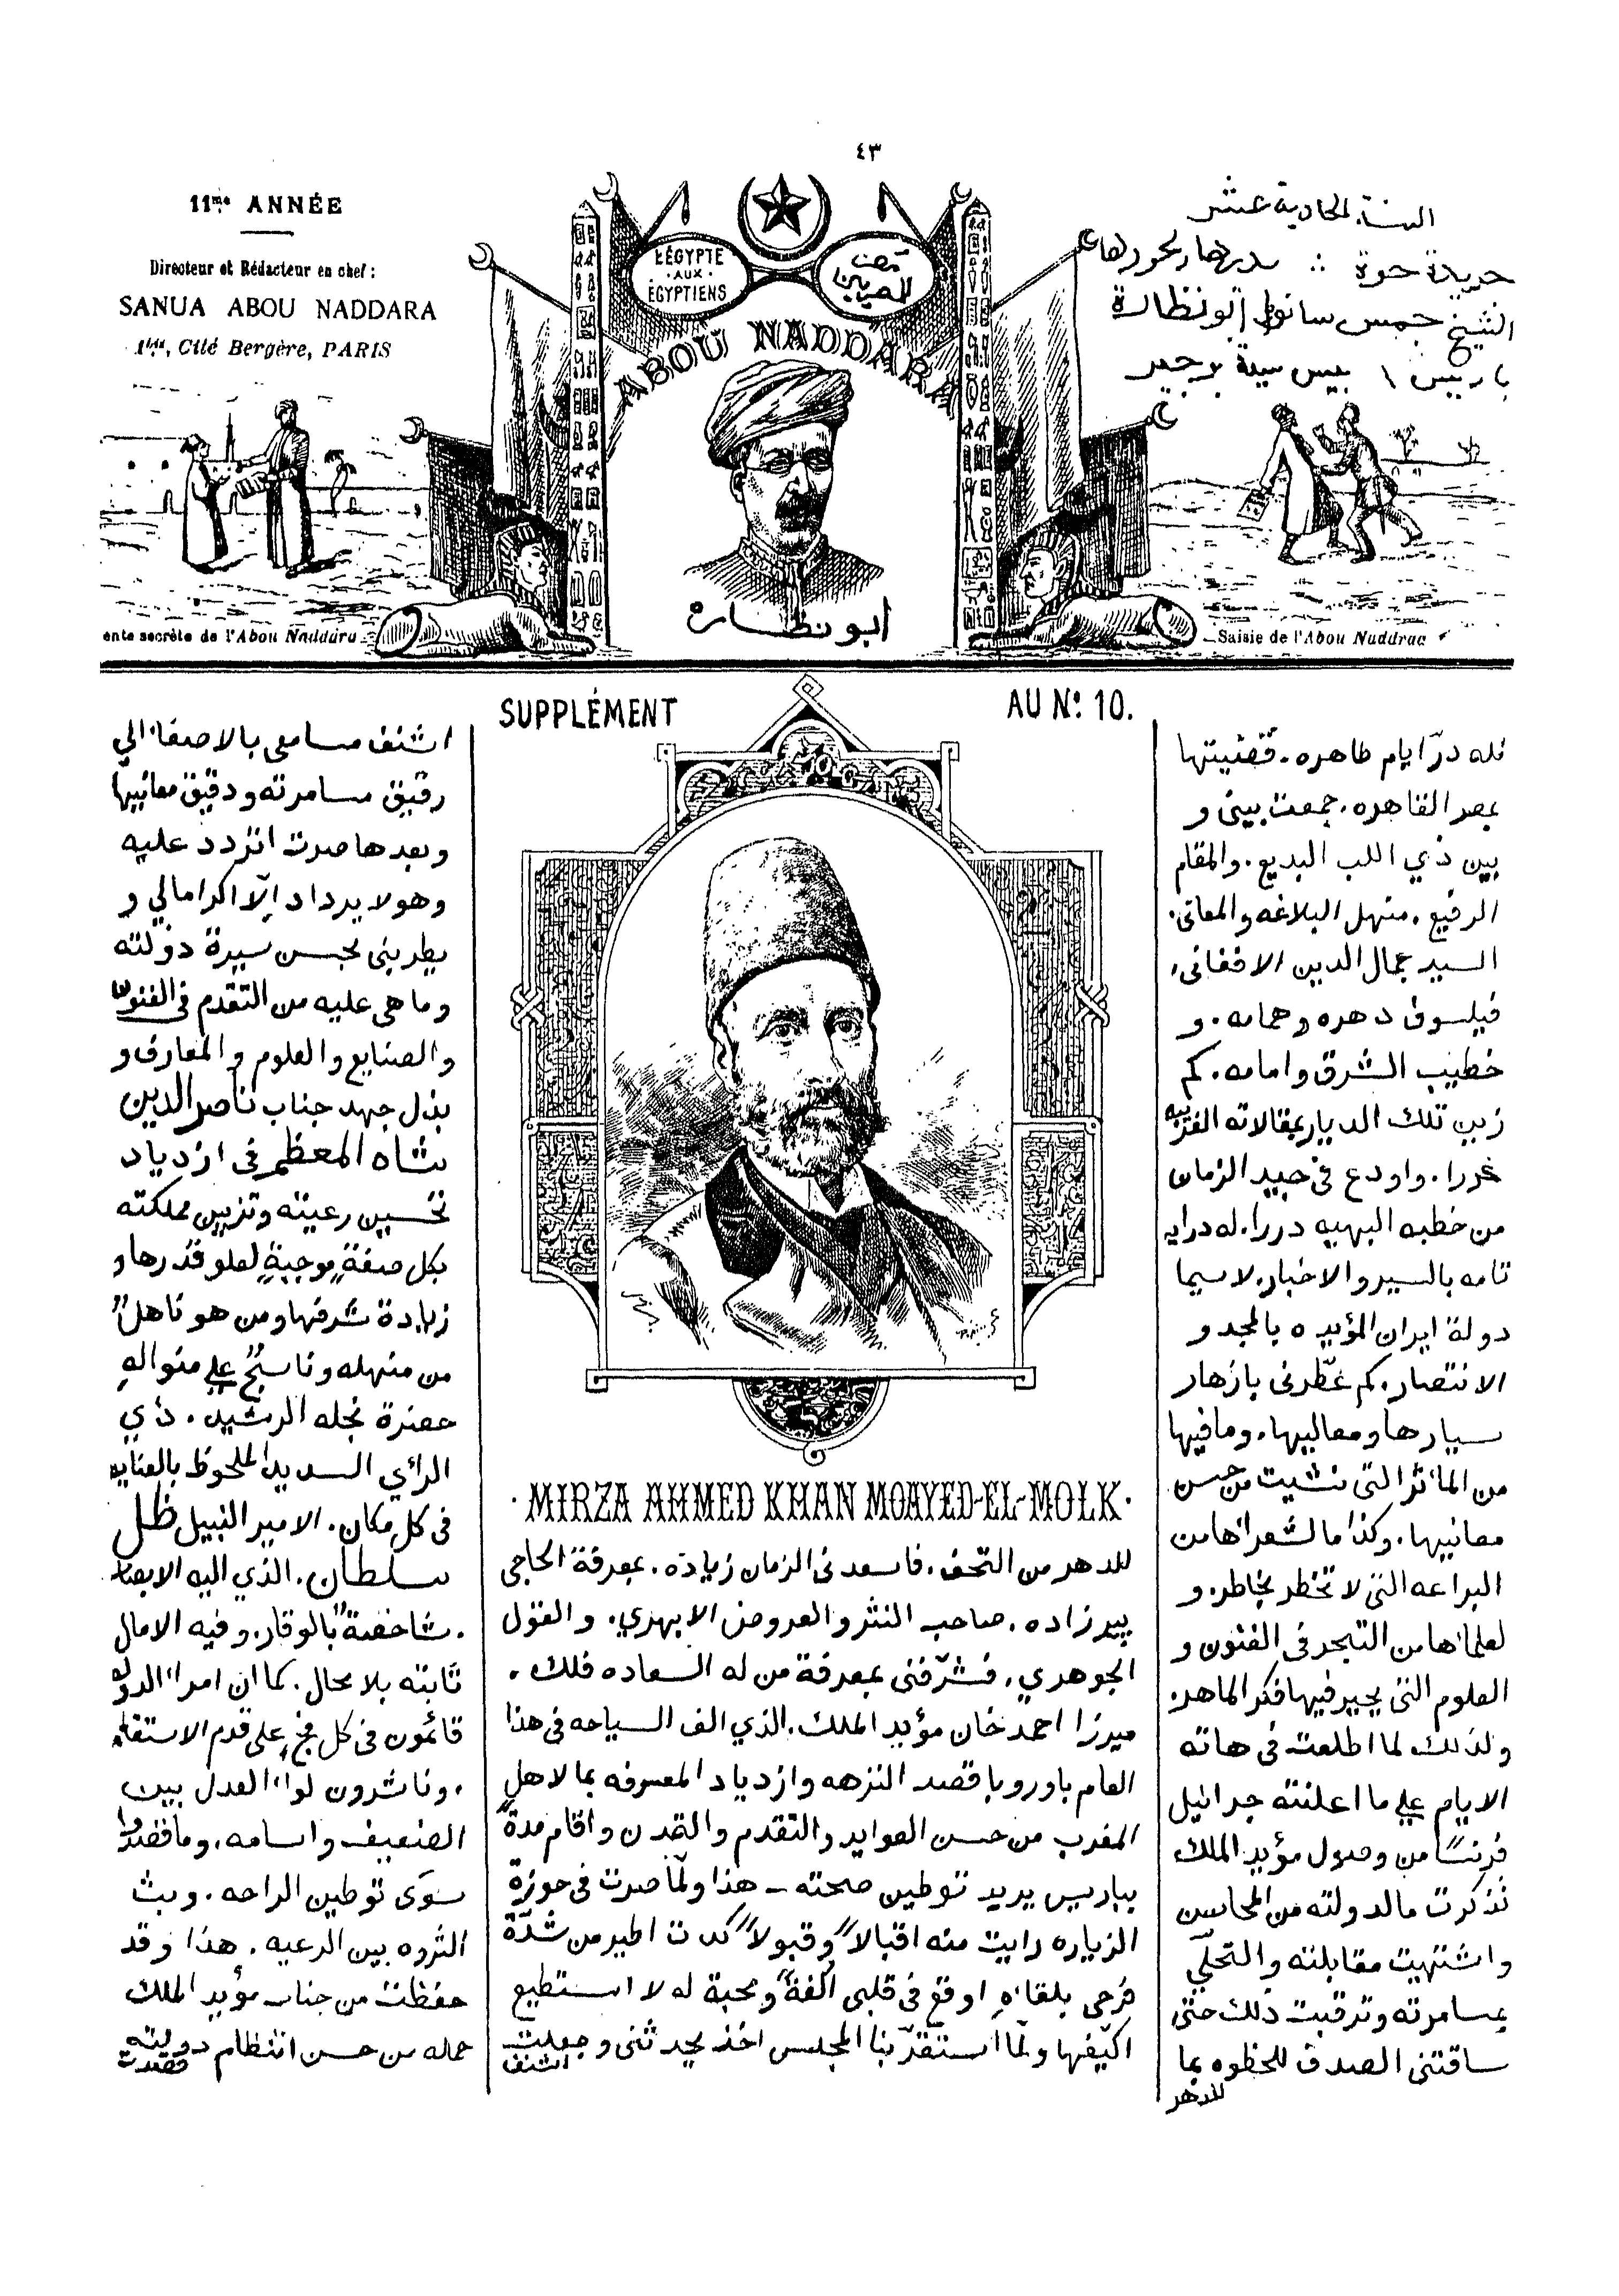 ٤٣
11me ANNÉE
Directeur et Rédacteur en chef :
SANUA ABOU NADDARA
1bis, Cité Bergère, PARIS
السنة الحادية عشر
جريدة حرة : مديرها ومحررها
الشيخ جمس سانوا ابو نظارة
باريس ١ بيس سيتة برجير
L'ÉGYPTE
AUX
ÉGYPTIENS
مصر
للمصريين
ABOU NADDARA
ابو نظاره
ente secrète de l'Abou Naddara
Saisie de l'Abou Naddrae
SUPPLÉMENT AU No. 10.
لله درّ ايام طاهره. قضيتها
بمصر القاهره. جمعت بيني و
بين ذي اللب البديع. والمقام
الرفيع. منهل البلاغه والمعاني.
السيد جمال الدين الافغاني.
فيلسوف دهره وهمامه. و
خطيب الشرق وامامه. كم
زين تلك الديار بمقالاته الغريبه
غررا. واودع في جيد الزمان
من خطبه البهيه دررا. له درايه
تامه بالسير والاخبار. لاسيما
دولة ايران المؤيده بالمجد و
الانتصار. كم عطّرني بازهار
سيارها ومعاليها. وما فيها
من المآثر التي نشيت من حسن
معانيها. وكذا ما لشعرائها من
البراعه التي لا تخطر بخاطر. و
لعلمائها من التبحر في الفنون و
العلوم التي يحير فيها فكر الماهر.
ولذلك لما اطلعت في هاته
الايام علي ما اعلنته جرانيل
فرنسا من وصول مؤيد الملك
تذكرت ما لدولته من المحاسن
واشتهيت مقابلته والتحلّي
بمسامرته وترقبت ذلك حتى
ساقتني الصدف للحظوه بما
للدهر
MIRZA AHMED KHAN MOAYED-EL-MOLK
للدهر من التحف. فاسعدني الزمان زياده. بمعرفة الحاجي
پيرزاده. صاحب النثر والعروض الابهري. والقول
الجوهري. فشرّفني بمعرفة من له السعاده فلك.
ميرزا احمد خان مؤيد الملك. الذي الف السياحه في هذا
العام باوروبا قصد النزهه وازدياد المعرفه بما لاهل
المغرب من حسن العوايد والتقدم والتمدن واقام مدةً
بباريس يريد توطين صحته ــ هذا ولمّا صرت في حوزة
الزياره رايت منه اقبالاً وقبولاً كدت اطير من شدّة
فرحي بلقائهِ اوقع في قلبي الفةً ومحبة له لا استطيع
اكيّفها ولمّا استقرّ بنا المجلس اخذ يحدثني وجعلت
اشنف
اشنف مسامعي بالاصغاء الي
رقيق مسامرته ودقيق معانيها
وبعدها صرت اتردد عليه
وهو لا يرداد الّا اكراما لي و
يطربني بحسن سيرة دولته
وما هي عليه من التقدم في الفنون
والصنايع والعلوم والمعارف و
بذل جهد جناب ناصر الدين
شاه المعظم في ازدياد
تحسين رعيته وتزيين مملكته
بكل صفةٍ موجبةٍ لعلو قدرها و
زيادة شرفها ومن هو ناهلٌ
من منهله وناسجٌ علي منوالهِ
حضرة نجله الرشيد. ذي
الرأي السديد الملحوظ بالعنايه
في كل مكان. الامير النبيل ظل
سلطان. الذي اليه الابصار
شاخصةً بالوقار. وفيه الامال
ثابته بلا محال. كما ان امراء الدوله
قائمون في كل فجٍ علي قدم الاستقامه
. وناشرون لواء العدل بين
الضعيف واسامه. وما قصدوا
سوى توطين الراحه. وبث
الثروه بين الرعيه. هذا وقد
حفظت من جناب مؤيد الملك
جمله من حسن انتظام دولته
فصدت